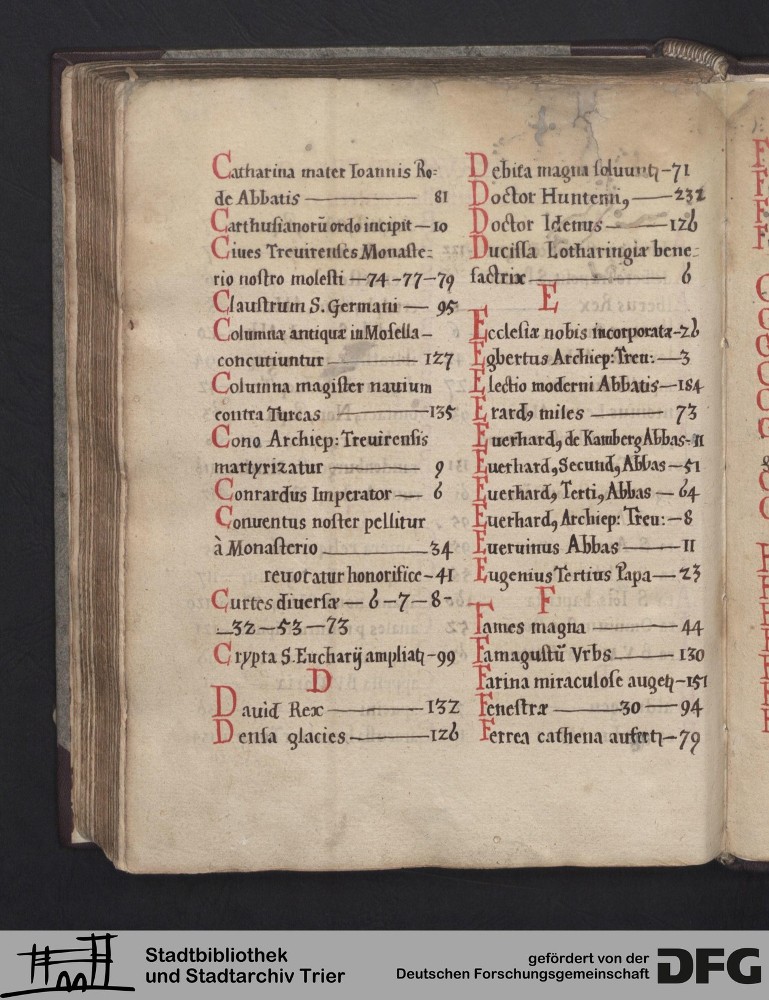 Catharina mater Ioannis Ro:
de Abbatis — 81
Carthusianorū ordo incipit — 10
Ciues Treuirenses Monaste:
rio nostro molesti — 74 - 77 - 79
Claustrum S. Germani — 95
Columnæ antiquæ in Mosella —
concutiuntur — 127
Columna magister nauium
contra Turcas — 135
Cono Archiep: Treuirensis
martyrizatur — 9
Conrardus Imperator — 6
Conuentus noster pellitur
à Monasterio — 34
reuocatur honorifice - 41
Curtes diuersæ — 6 - 7 - 8 -
- 32 - 53 - 73
Crypta S. Eucharij ampliatꝛ - 99
D
Dauid Rex — 132
Densa glacies — 126
Debita magna soluuntꝛ - 71
Doctor Huntemꝰ, — 232
Doctor Idemus — 126
Ducissa Lotharingiæ bene:
factrix — 6
E
Ecclesiæ nobis incorporatæ - 26
Egbertus Archiep: Treu: — 3
Electio moderni Abbatis — 184
Erardꝰ miles — 73
Euerhardꝰ de Kamberg Abbas - 11
Euerhardꝰ Secundꝰ Abbas — 51
Euerhardꝰ Tertiꝰ Abbas — 64
Euerhardꝰ Archiep: Treu: — 8
Eueruinus Abbas — 11
Eugenius Tertius Papa — 23
F
Fames magna — 44
Famagustū Vrbs — 130
Farina miraculose augetꝛ - 151
Fenestræ — 30 — 94
Ferrea cathena aufertꝛ - 79
Stadtbibliothek
und Stadtarchiv Trier
gefördert von der
Deutschen Forschungsgemeinschaft
DFG